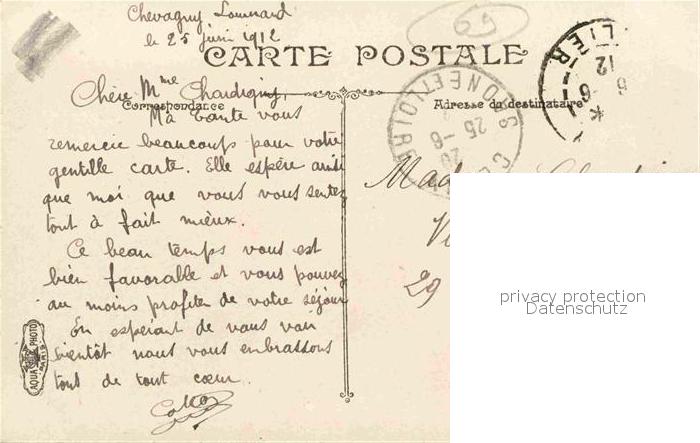 Chevagny Lournand
le 25 juin 1912
69
CARTE POSTALE
Correspondance
Adresse du destinataire
Chère Mme Chardigny,
Ma tante vous
remercie beaucoup pour votre
gentille carte. Elle espère ainsi
que moi que vous vous sentez
tout à fait mieux.
Ce beau temps vous est
bien favorable et vous pouvez
au moins profiter de votre séjour
En espérant de vous voir
bientôt nous vous embrassons
tout de tout cœur.
SAONE ET LOIRE
25 -6
12
Mad
29
AQUA PHOTO
PARIS
privacy protection
Datenschutz